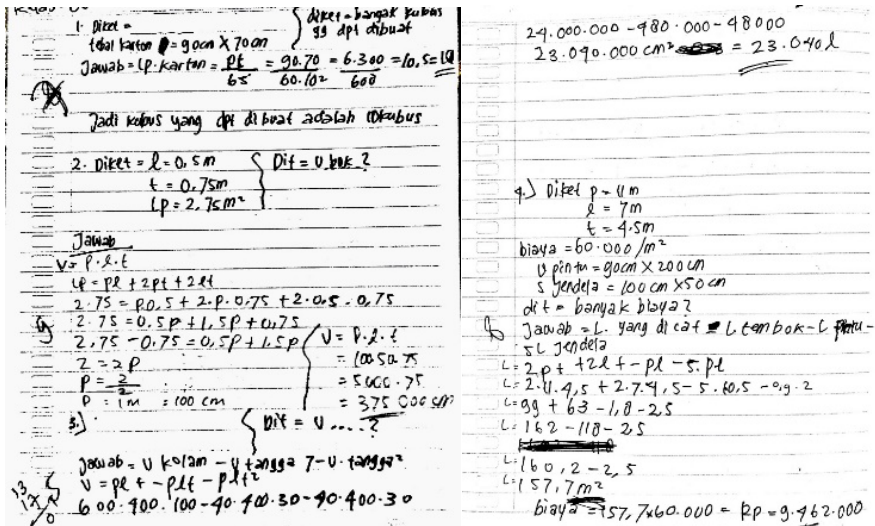 1. Diket =
tebal karton = 90cm X 70cm
diket = banyak kubus
yg dpt dibuat
Jawab = Lp. karton = pl = 90.70 = 6.300 = 10,5 = 10
6s² 60.10² 600
Jadi kubus yang dpt dibuat adalah 10kubus
2. Diket = l = 0,5 m
t = 0,75m
Lp = 2,75m²
Dit = V bak ?
Jawab
V = P.l.t
Lp = pl + 2pt + 2lt
2.75 = p.0,5 + 2.p.0,75 + 2.0,5 . 0,75
2.75 = 0,5p + 1,5p + 0,75
2,75 - 0,75 = 0,5p + 1,5p
2 = 2p
P = 2
2
P = 1m = 100 cm
V = P.l.t
= 100.50.75
= 5000.75
= 375.000 cm³
3.)
Dit = V .... ?
Jawab = V kolam - V tangga 1 - V. tangga²
V = plt - plt - plt²
600.400.100 - 40.400.30 - 40.400.30
24.000.000 - 480.000 - 48000
23.040.000 cm³ = 23.040 l
4.) Diket p = 11 m
l = 7m
t = 4.5m
biaya = 60.000 /m²
U pintu = 90cm X 200cm
5 jendela = 100 cm X 50 cm
dit = banyak biaya?
Jawab = L. yang di cat = L tembok - L pintu -
5L Jendela
L = 2pt + 2lt - pl - 5.pl
L = 2.11.4,5 + 2.7.4,5 - 5.1.0,5 - 0,9.2
L = 99 + 63 - 1,8 - 2,5
L = 162 - 1,8 - 2,5
L = 160,2 - 2,5
L = 157,7 m²
biaya = 157,7 x 60.000 = Rp = 9.462.000